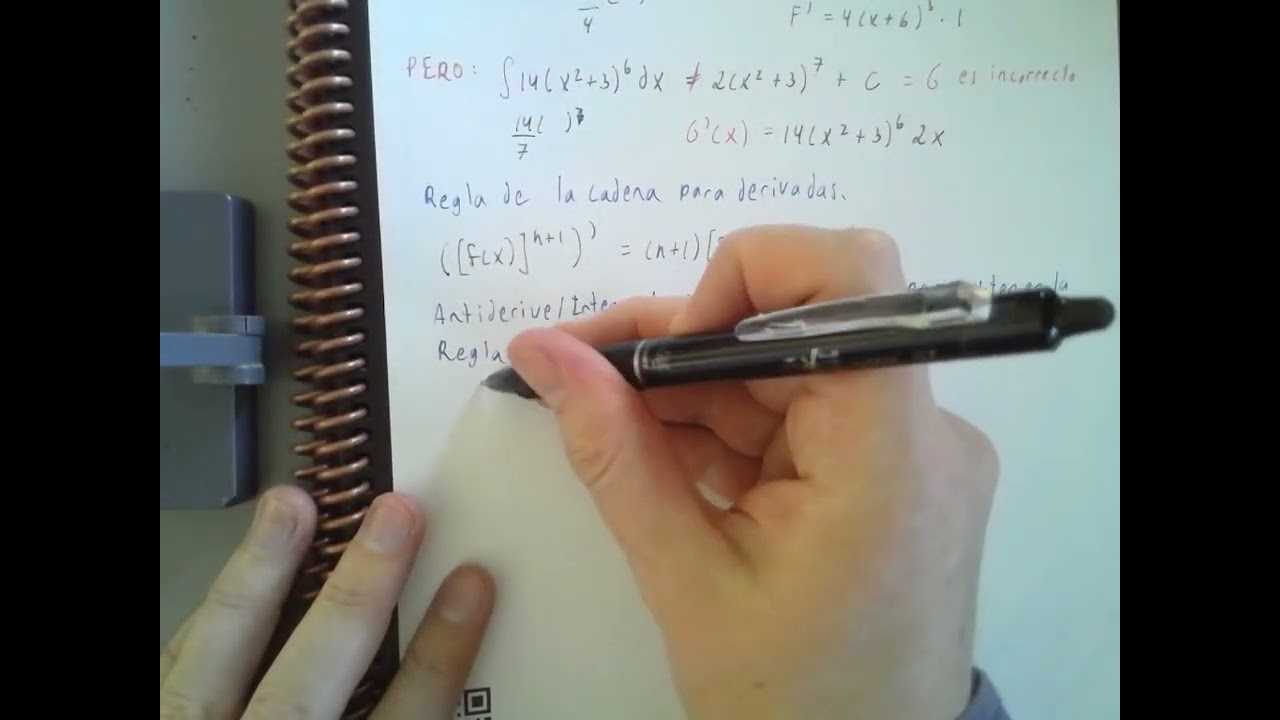 4
F' = 4(x+6)³ · 1
PERO: ∫14(x²+3)⁶dx ≠ 2(x²+3)⁷ + C = G es incorrecto
14( )⁷/7
G'(x) = 14(x²+3)⁶ 2x
Regla de la cadena para derivadas.
([f(x)]ⁿ⁺¹)' = (n+1)[
Antiderive/Inte
la
Regla